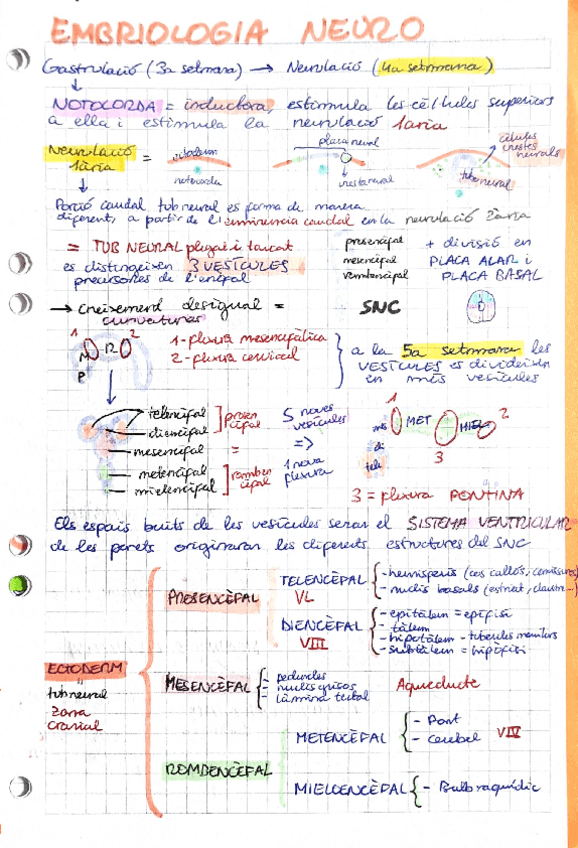 EMBRIOLOGIA NEURO
Gastrulació (3a setmana) → Neurulació (4a setmana)
NOTOCORDA = inductora, estimula les cèl·lules superiors
a ella i estimula la neurulació 1ària
Neurulació
1ària =
ectoderm
notocorda
placa neural
cresta neural
cèl·lules
crestes
neurals
tub neural
Porció caudal tub neural es forma de manera
diferent, a partir de l'eminència caudal en la neurulació 2ària
= TUB NEURAL plegat i tancat
es distingeixen 3 VESÍCULES
precursores de l'encèfal
prosencèfal
mesencèfal
rombencèfal
+ divisió en
PLACA ALAR i
PLACA BASAL
→ Creixement desigual =
curvatures
SNC
1 2
M R
P
1-flexura mesencefàlica
2-flexura cervical
a la 5a setmana les
VESÍCULES es divideixen
en més vesícules
telencèfal
diencèfal
prosen
cèfal
mesencèfal =
metencèfal
mielencèfal
romben
cèfal
5 noves
vesícules
=>
1 nova
flexura
1
mes
di
tele
MET
MIEL
2
3
3 = flexura PONTINA
Els espais buits de les vesícules seran el SISTEMA VENTRICULAR
de les parets originaran les diferents estructures del SNC
ECTODERM
=
tub neural
zona
cranial
PROSENCÈFAL
TELENCÈFAL
VL
- hemisferis (cos callós, comissures)
- nuclis basals (estriat, claustre...)
DIENCÈFAL
VIII
- epitàlem = epífisi
- tàlem
- hipotàlem - tubercles mamilars
- subtàlem = hipòfisi
MESENCÈFAL
- peduncles
- nuclis grisos
- làmina tectal
Aqüeducte
ROMBENCÈFAL
METENCÈFAL
- Pont
- Cerebel
VIV
MIELOENCÈFAL
- Bulb raquídic